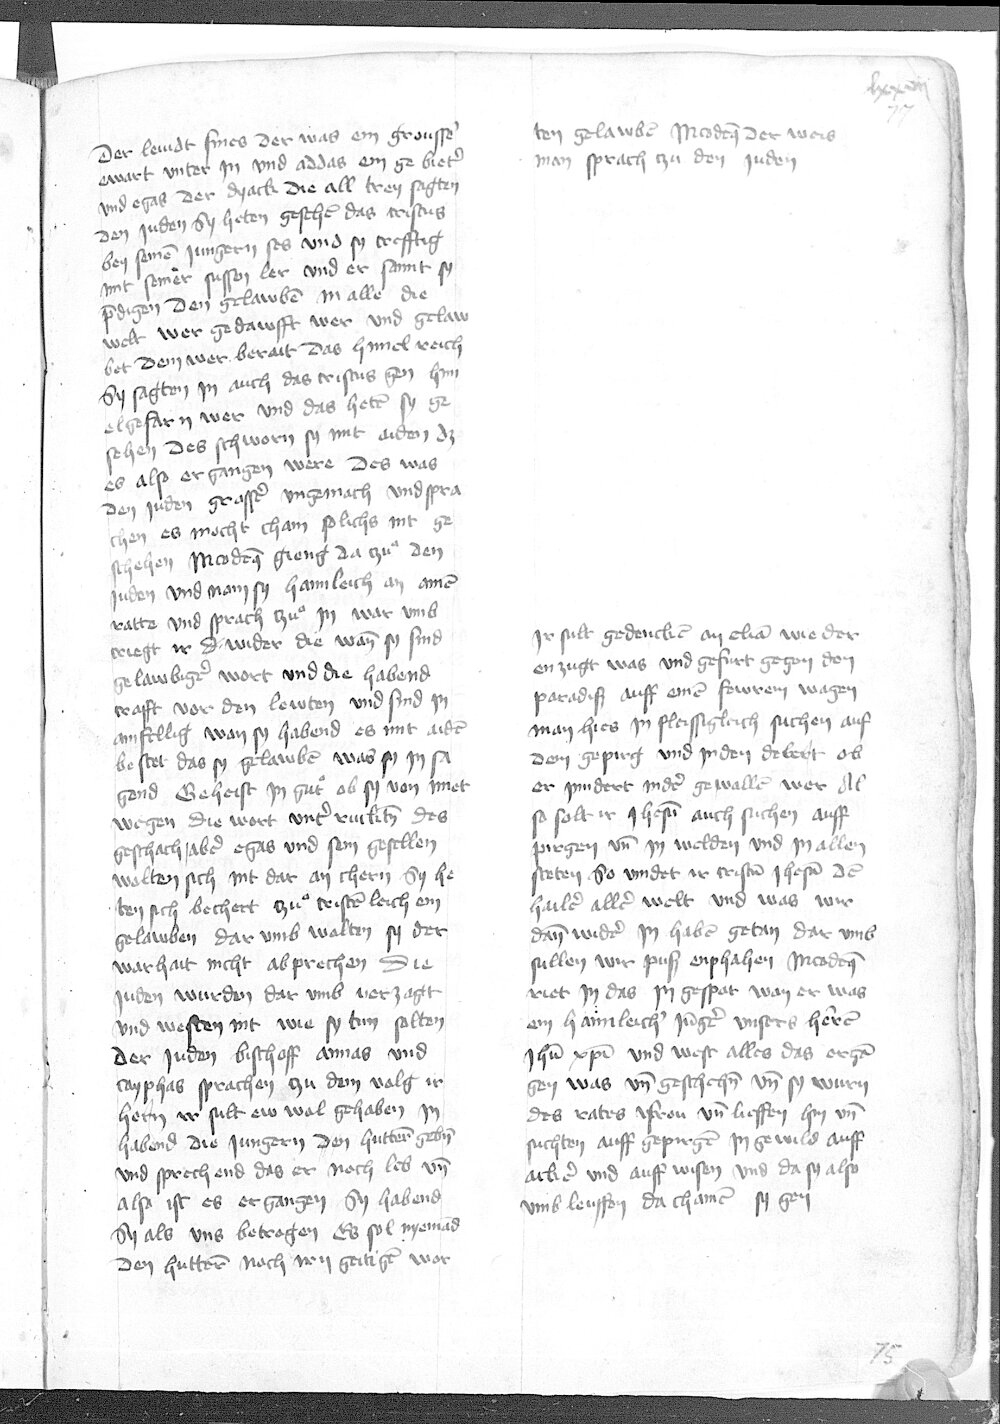 lxxvii
77
Der lewdt fines der was ein grousser
ewart unter in und addas ein ge bietr
und egas der dyack die all trey sagten
den juden Sy heten gesehē das cristus
bey seinē jungern ses und sy crefftig
mit seiner sussen ler und er sannt sy
p̄digen den gelawbē in alle die
welt wer gedawfft wer und gelaw
bet dem wer berait das himel reich
Sy sagten in auch das cristus gen him
el gefarn wer und das hetē sy ge
sehen des schworn sy mit aiden dz
es also ergangen were Des was
den juden grosser ungemach und spra
chen es mocht cham solichs nit ge
schehen Nicodeq̄ gieng da zu den
juden und nam sy haimleich an ainē
ratte und sprach zu in war umb
criegt ir do wider die wan̄ sy sind
gelawbiger wort und die habend
crafft vor den lewten und sind in
ainfellig wan sy habend es mit aidē
bestet das sy gelawbē was sy in sa
gend Geheist in gut ob sy von miet
wegen die wort
geschach aber egas und sein gesellen
wolten sich nit dar an chern Sy he
ten sich bechert zu cristēleich em
gelawben dar umb wolten sy der
warhait nicht absprechen Die
juden wurden dar umb verzagt
und westen nit wie sy tun solten
Der juden bischoff annas und
cayphas sprachen zu dem volg ir
hern ir sult ew wol gehaben in
habend die jungern den hutterē gebn̄
und sprechend das er noch leb un̄
also ist es ergangen Sy habend
Sy als uns betrogen Es sol nyemād
den hutterē noch irn geitigē wor
ten gelawbē Nicodeq̄ der weis
man sprach zu den juden
Ir sult gedenckē an eliā wie der
enzugt was und gefurt gegen den
paradiss auff einē fewrein wagen
man hies in fleissigleich suchen auf
dem gepirg und in den ob
er inndert inder gewallē wer Al
so solt ir Jhesū auch suchen auff
pirgen un̄ in welden und in allen
steten So vindet ir cristū Jhesū dē
hailer aller welt und was wir
dan̄ wider in habē getan dar umb
sullen wir puss enphahen Nicodeq̄
riet in das in gespot wan er was
ein haimleicher jūger unsers herrē
Jhū xpī und west alles das ergā
gen was un̄ geschehn̄ un̄ sy wurn
des rates fro un̄ lieffen hin un̄
suchten auff gepirgē in gewild auff
acker und auff wisen und da sy also
umb leuffen da chamē sy gen
75